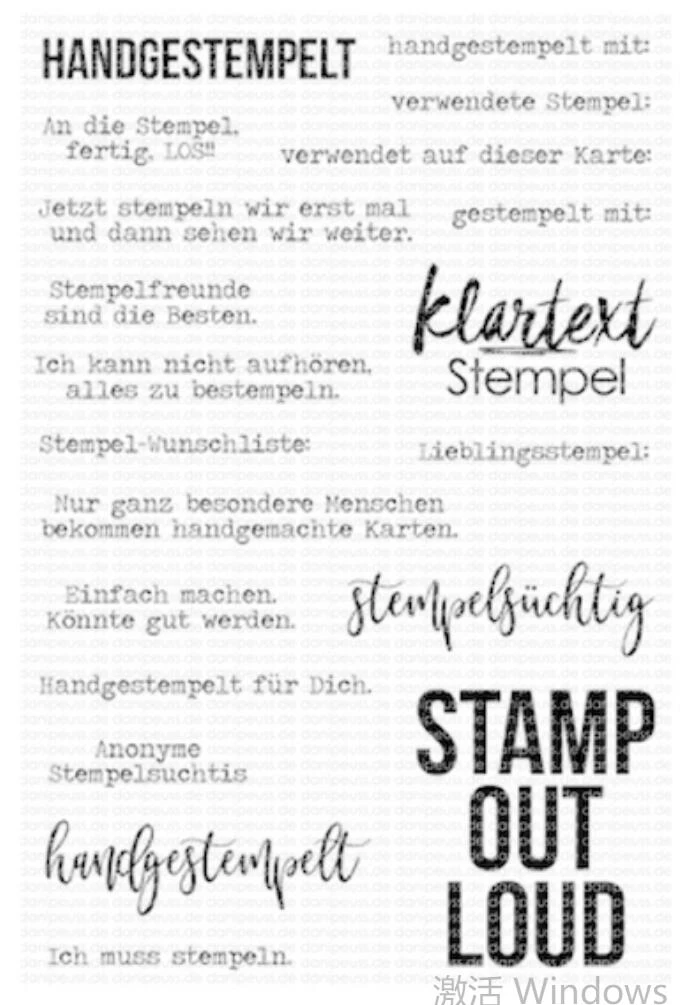 HANDGESTEMPELT
handgestempelt mit:
verwendete Stempel:
An die Stempel,
fertig, LOS!!
verwendet auf dieser Karte:
Jetzt stempeln wir erst mal
und dann sehen wir weiter.
gestempelt mit:
Stempelfreunde
sind die Besten.
klartext
Stempel
Ich kann nicht aufhören,
alles zu bestempeln.
Stempel-Wunschliste:
Lieblingsstempel:
Nur ganz besondere Menschen
bekommen handgemachte Karten.
Einfach machen.
Könnte gut werden.
stempelsüchtig
Handgestempelt für Dich.
STAMP
OUT
LOUD
Anonyme
Stempelsuchtis
handgestempelt
Ich muss stempeln.
激活 Windows